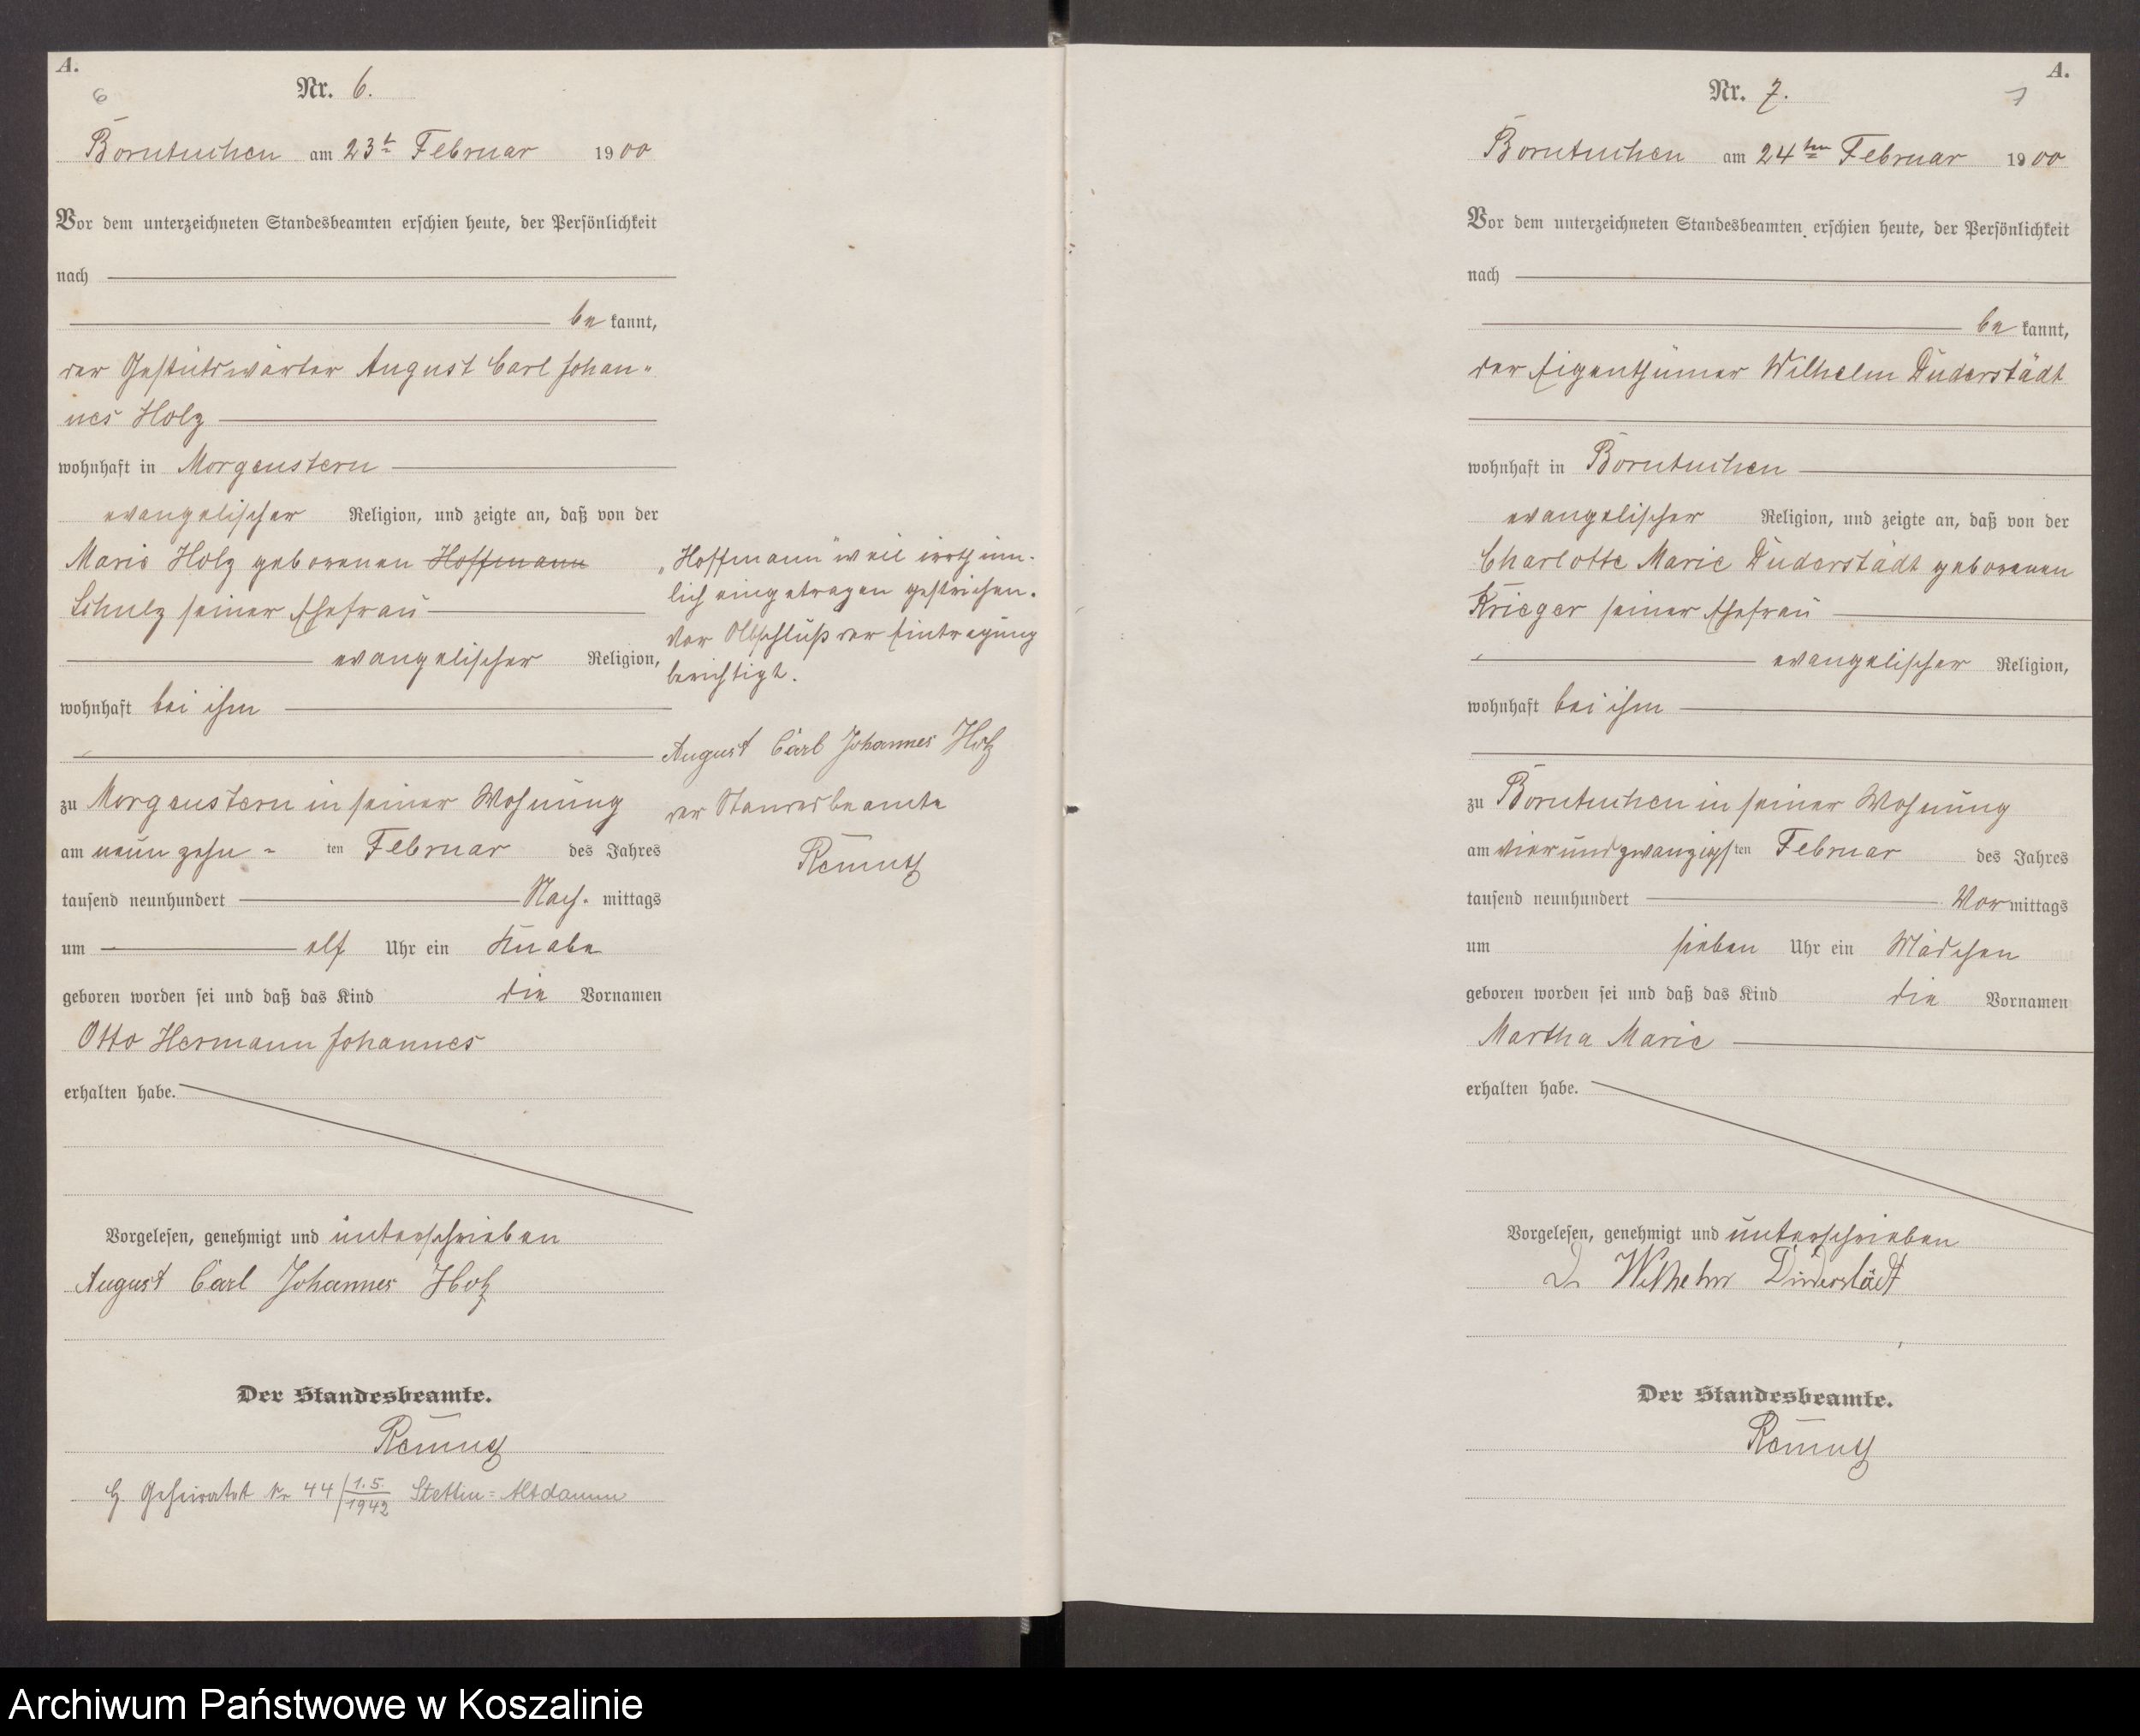 A.
6
Nr. 6.
Borntuchen am 23t Februar 1900
Vor dem unterzeichneten Standesbeamten erschien heute, der Persönlichkeit
nach
be kannt,
der Gestütswärter August Carl Johan-
nes Holz
wohnhaft in Morgenstern
evangelischer Religion, und zeigte an, daß von der
Marie Holz geborenen Hoffmann
Schulz seiner Ehefrau
evangelischer Religion,
wohnhaft bei ihm
zu Morgenstern in seiner Wohnung
am neunzehn - ten Februar des Jahres
tausend neunhundert Nach. mittags
um elf Uhr ein Knabe
geboren worden sei und daß das Kind die Vornamen
Otto Hermann Johannes
erhalten habe.
Vorgelesen, genehmigt und unterschrieben
August Carl Johannes Holz
Der Standesbeamte.
G. Geheiratet Nr 44/1.5.1942 Stettin=Altdamm
„Hoffmann" weil irrthüm-
lich eingetragen gestrichen.
Vor Abschluß der Eintragung
berichtigt.
August Carl Johannes Holz
der Standesbeamte
A.
7
Nr. 7.
Borntuchen am 24ten Februar 1900
Vor dem unterzeichneten Standesbeamten erschien heute, der Persönlichkeit
nach
be kannt,
der Eigenthümer Wilhelm Duderstädt
wohnhaft in Borntuchen
evangelischer Religion, und zeigte an, daß von der
Charlotte Marie Duderstädt geborenen
Krieger seiner Ehefrau
evangelischer Religion,
wohnhaft bei ihm
zu Borntuchen in seiner Wohnung
am vierundzwanzigsten Februar des Jahres
tausend neunhundert Vormittags
um sieben Uhr ein Mädchen
geboren worden sei und daß das Kind die Vornamen
Martha Marie
erhalten habe.
Vorgelesen, genehmigt und unterschrieben
Wilhelm Duderstädt
Der Standesbeamte.
Archiwum Państwowe w Koszalinie